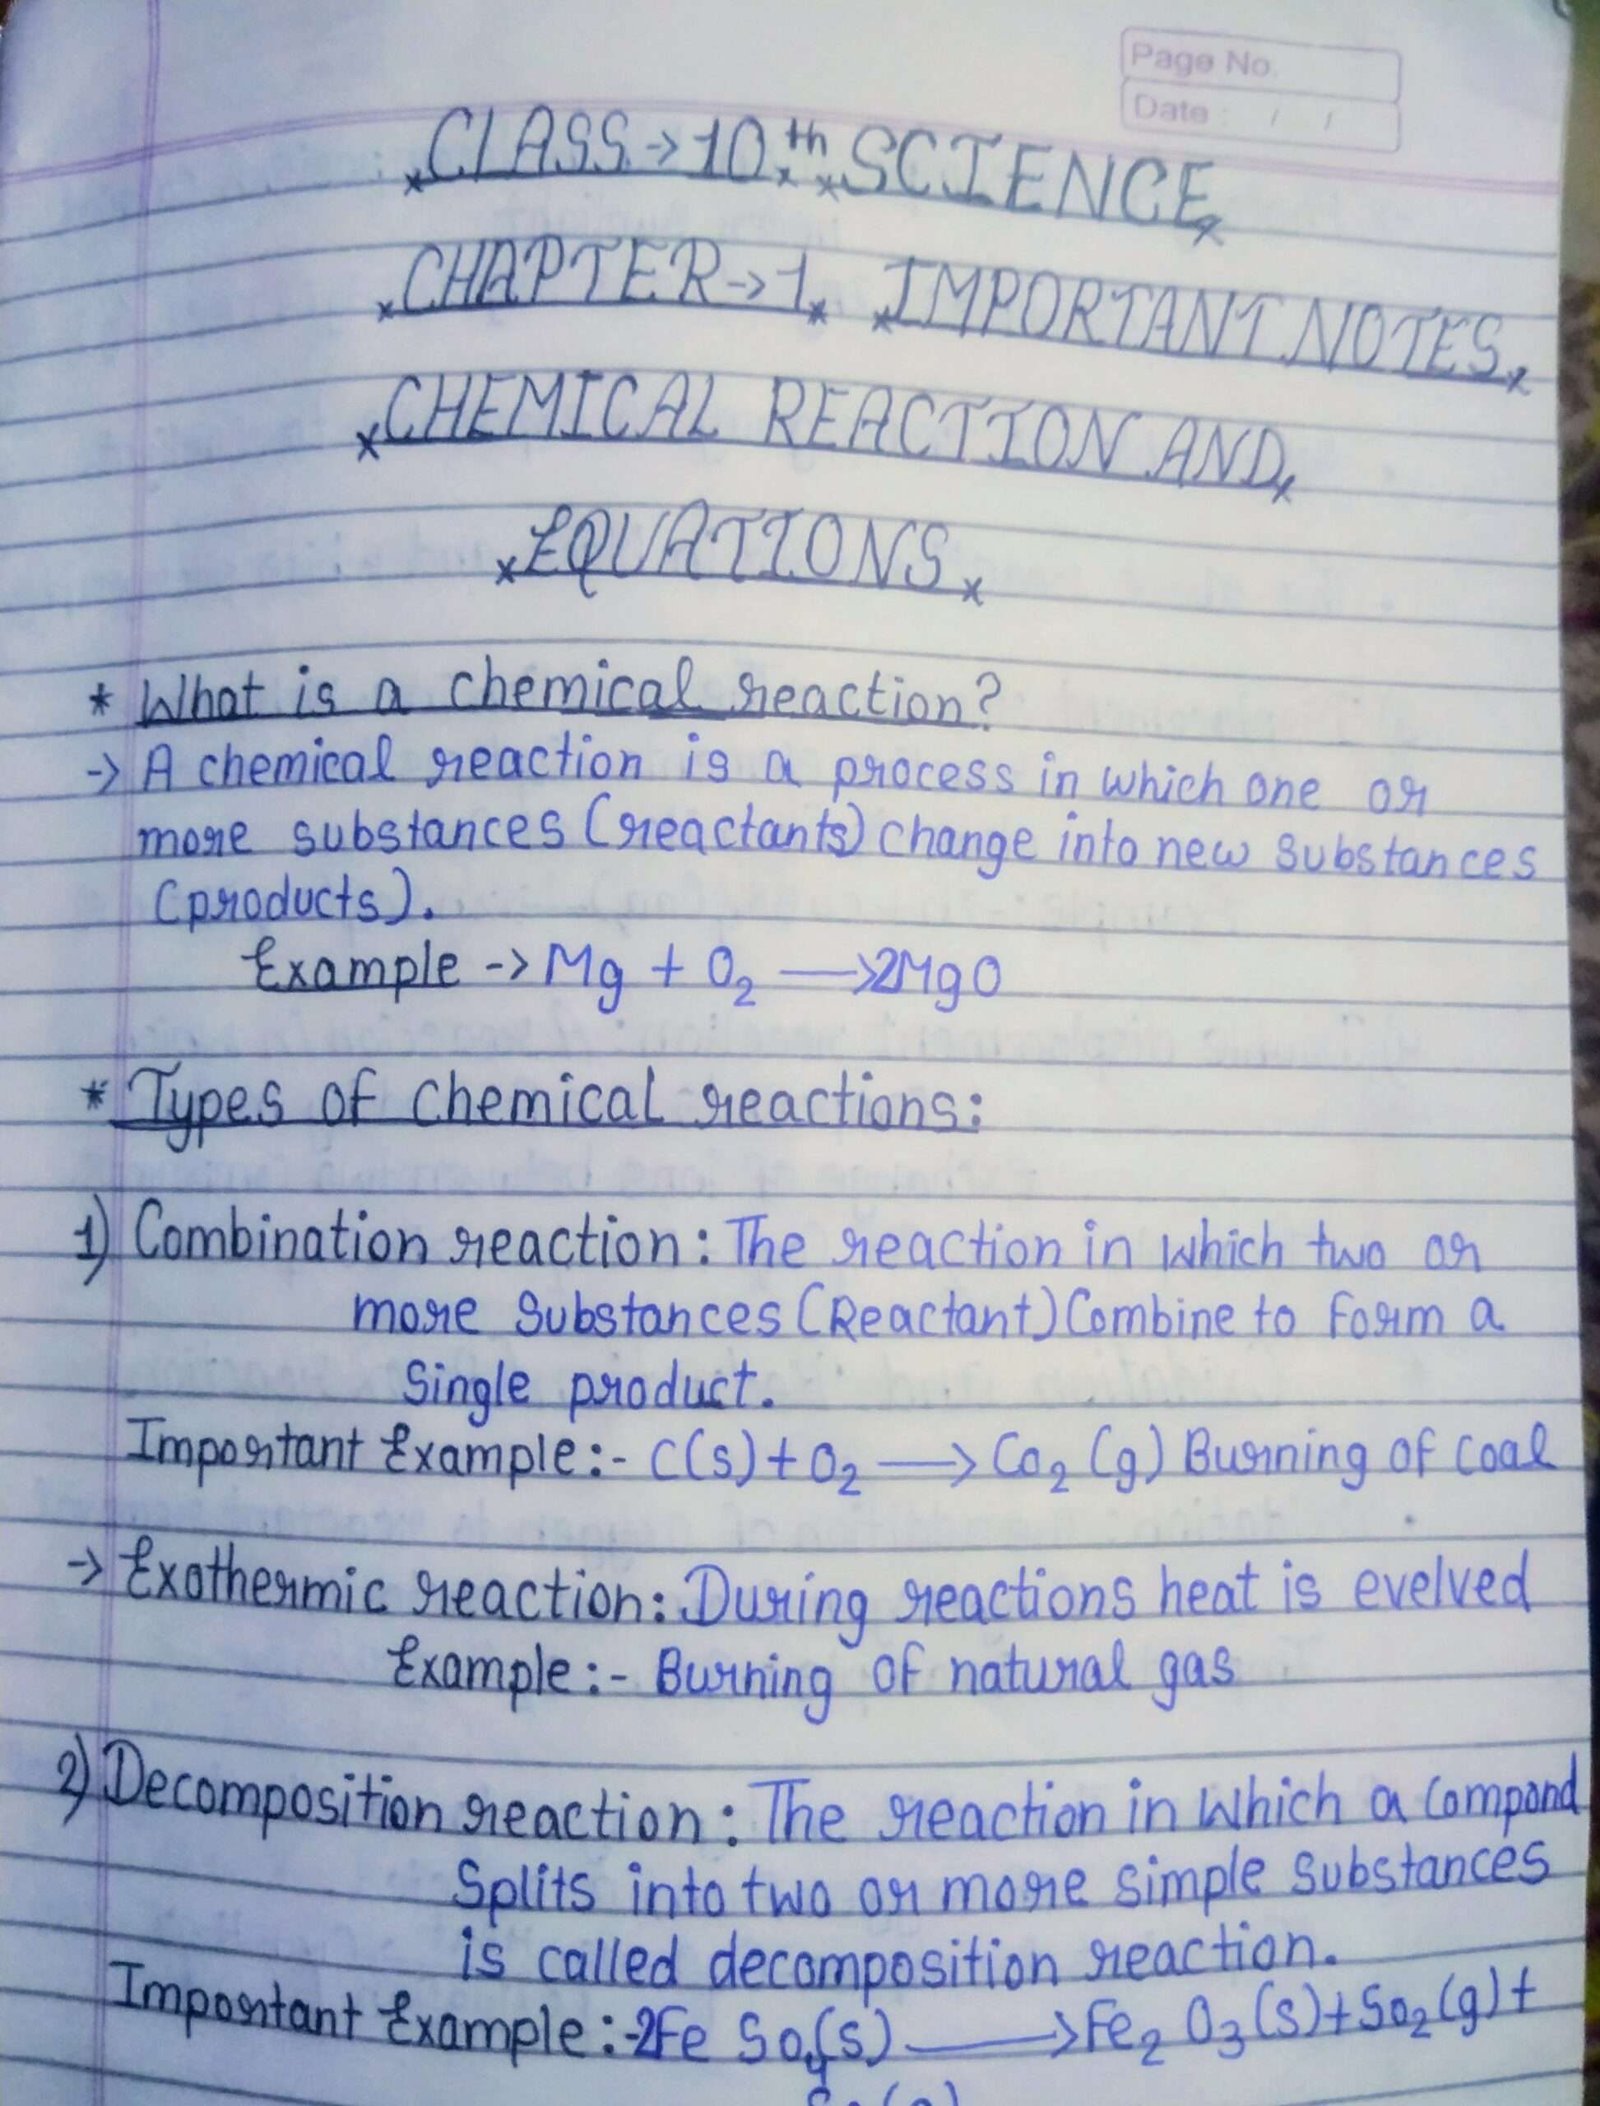 Page No.
Date / /
CLASS → 10th SCIENCE
CHAPTER → 1 IMPORTANT NOTES
CHEMICAL REACTION AND
EQUATIONS
* What is a chemical reaction?
-> A chemical reaction is a process in which one or
more substances (reactants) change into new substances
(products).
Example -> Mg + O₂ ⟶ 2MgO
* Types of chemical reactions:
1) Combination reaction: The reaction in which two or
more Substances (Reactant) Combine to form a
Single product.
Important Example:- C(s) + O₂ ⟶ Co₂ (g) Burning of coal
-> Exothermic reaction: During reactions heat is evelved
Example:- Burning of natural gas
2) Decomposition reaction: The reaction in which a compond
Splits into two or more simple substances
is called decomposition reaction.
Important Example:-2Fe So₄(s) ⟶ Fe₂ O₃ (s) + So₂ (g) +